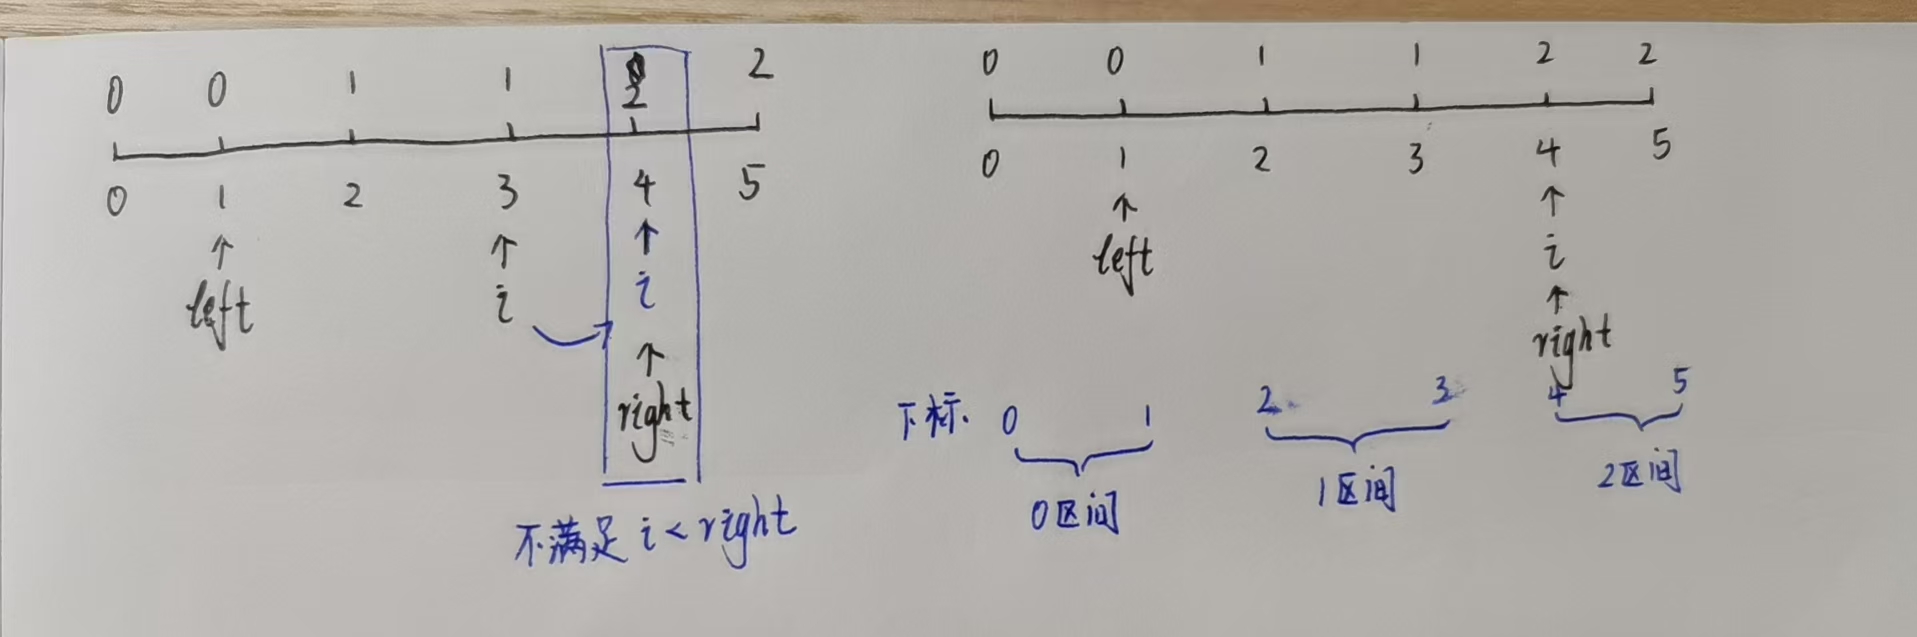 0 0 1 1 2 2
0 1 2 3 4 5
↑ ↑ ↑
left i i
↑
right
不满足 i < right
0 0 1 1 2 2
0 1 2 3 4 5
↑ ↑
left i
↑
right
下标. 0 1 2 3 4 5
0区间 1区间 2区间